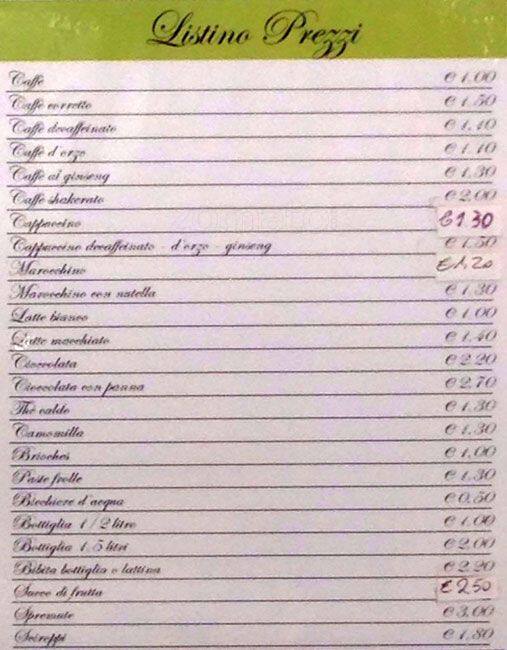 Listino Prezzi
Caffè € 1,00
Caffè corretto € 1,50
Caffè decaffeinato € 1,10
Caffè d'orzo € 1,10
Caffè al ginseng € 1,30
Caffè shakerato € 2,00
Cappuccino € 1.30
Cappuccino decaffeinato - d'orzo - ginseng € 1,50
Marocchino € 1,20
Marocchino con nutella € 1,30
Latte bianco € 1,00
Latte macchiato € 1,40
Cioccolata € 2,20
Cioccolata con panna € 2,70
Thè caldo € 1,30
Camomilla € 1,30
Brioches € 1,00
Paste frolle € 1,30
Bicchiere d'acqua € 0,50
Bottiglia 1/2 litro € 1,00
Bottiglia 1,5 litri € 2,00
Bibita bottiglia o lattina € 2,20
Succo di frutta € 2.50
Spremute € 3,00
Sciroppi € 1,80